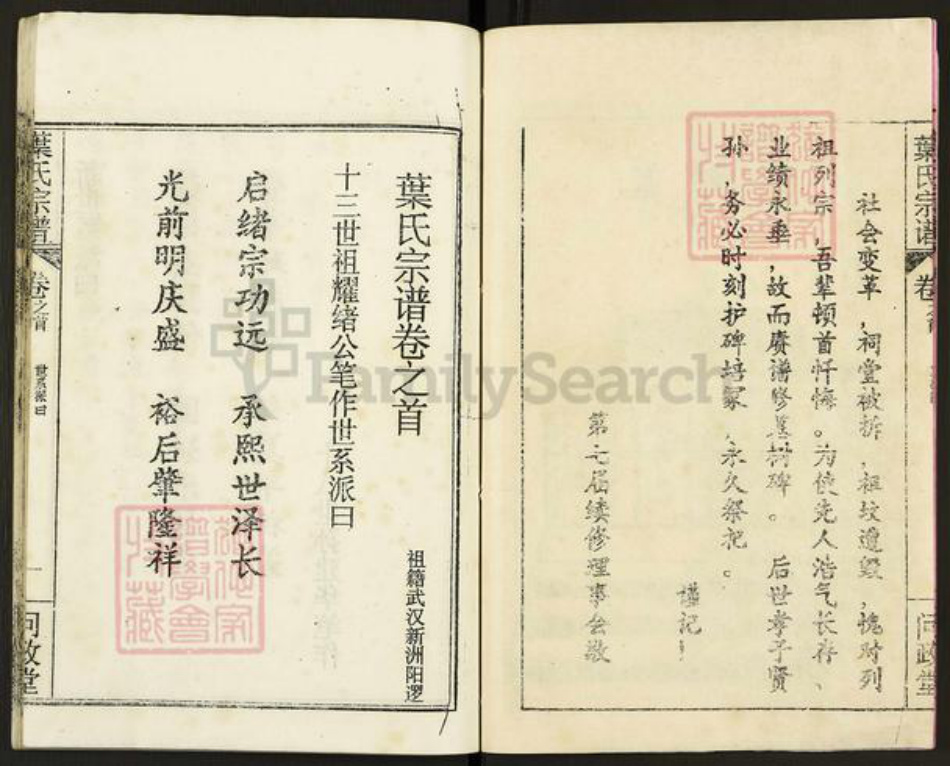 社会变革，祠堂被拆，祖坟遭毁，愧对列
祖列宗，吾辈顿首忏悔。为使先人浩气长存、
业绩永垂，故而赓谱修墓树碑。后世孝子贤
孙，务必时刻护碑培冢，永久祭祀。
谨记！
第七届续修理事会敬
葉氏宗谱
问政堂
葉氏宗谱卷之首
祖籍武汉新洲阳逻
十三世祖耀绪公笔作世系派曰
启绪宗功远 承熙世泽长
光前明庆盛 裕后肇隆祥
葉氏宗譜
卷之首
世系派曰
一
问政堂
FamilySearch